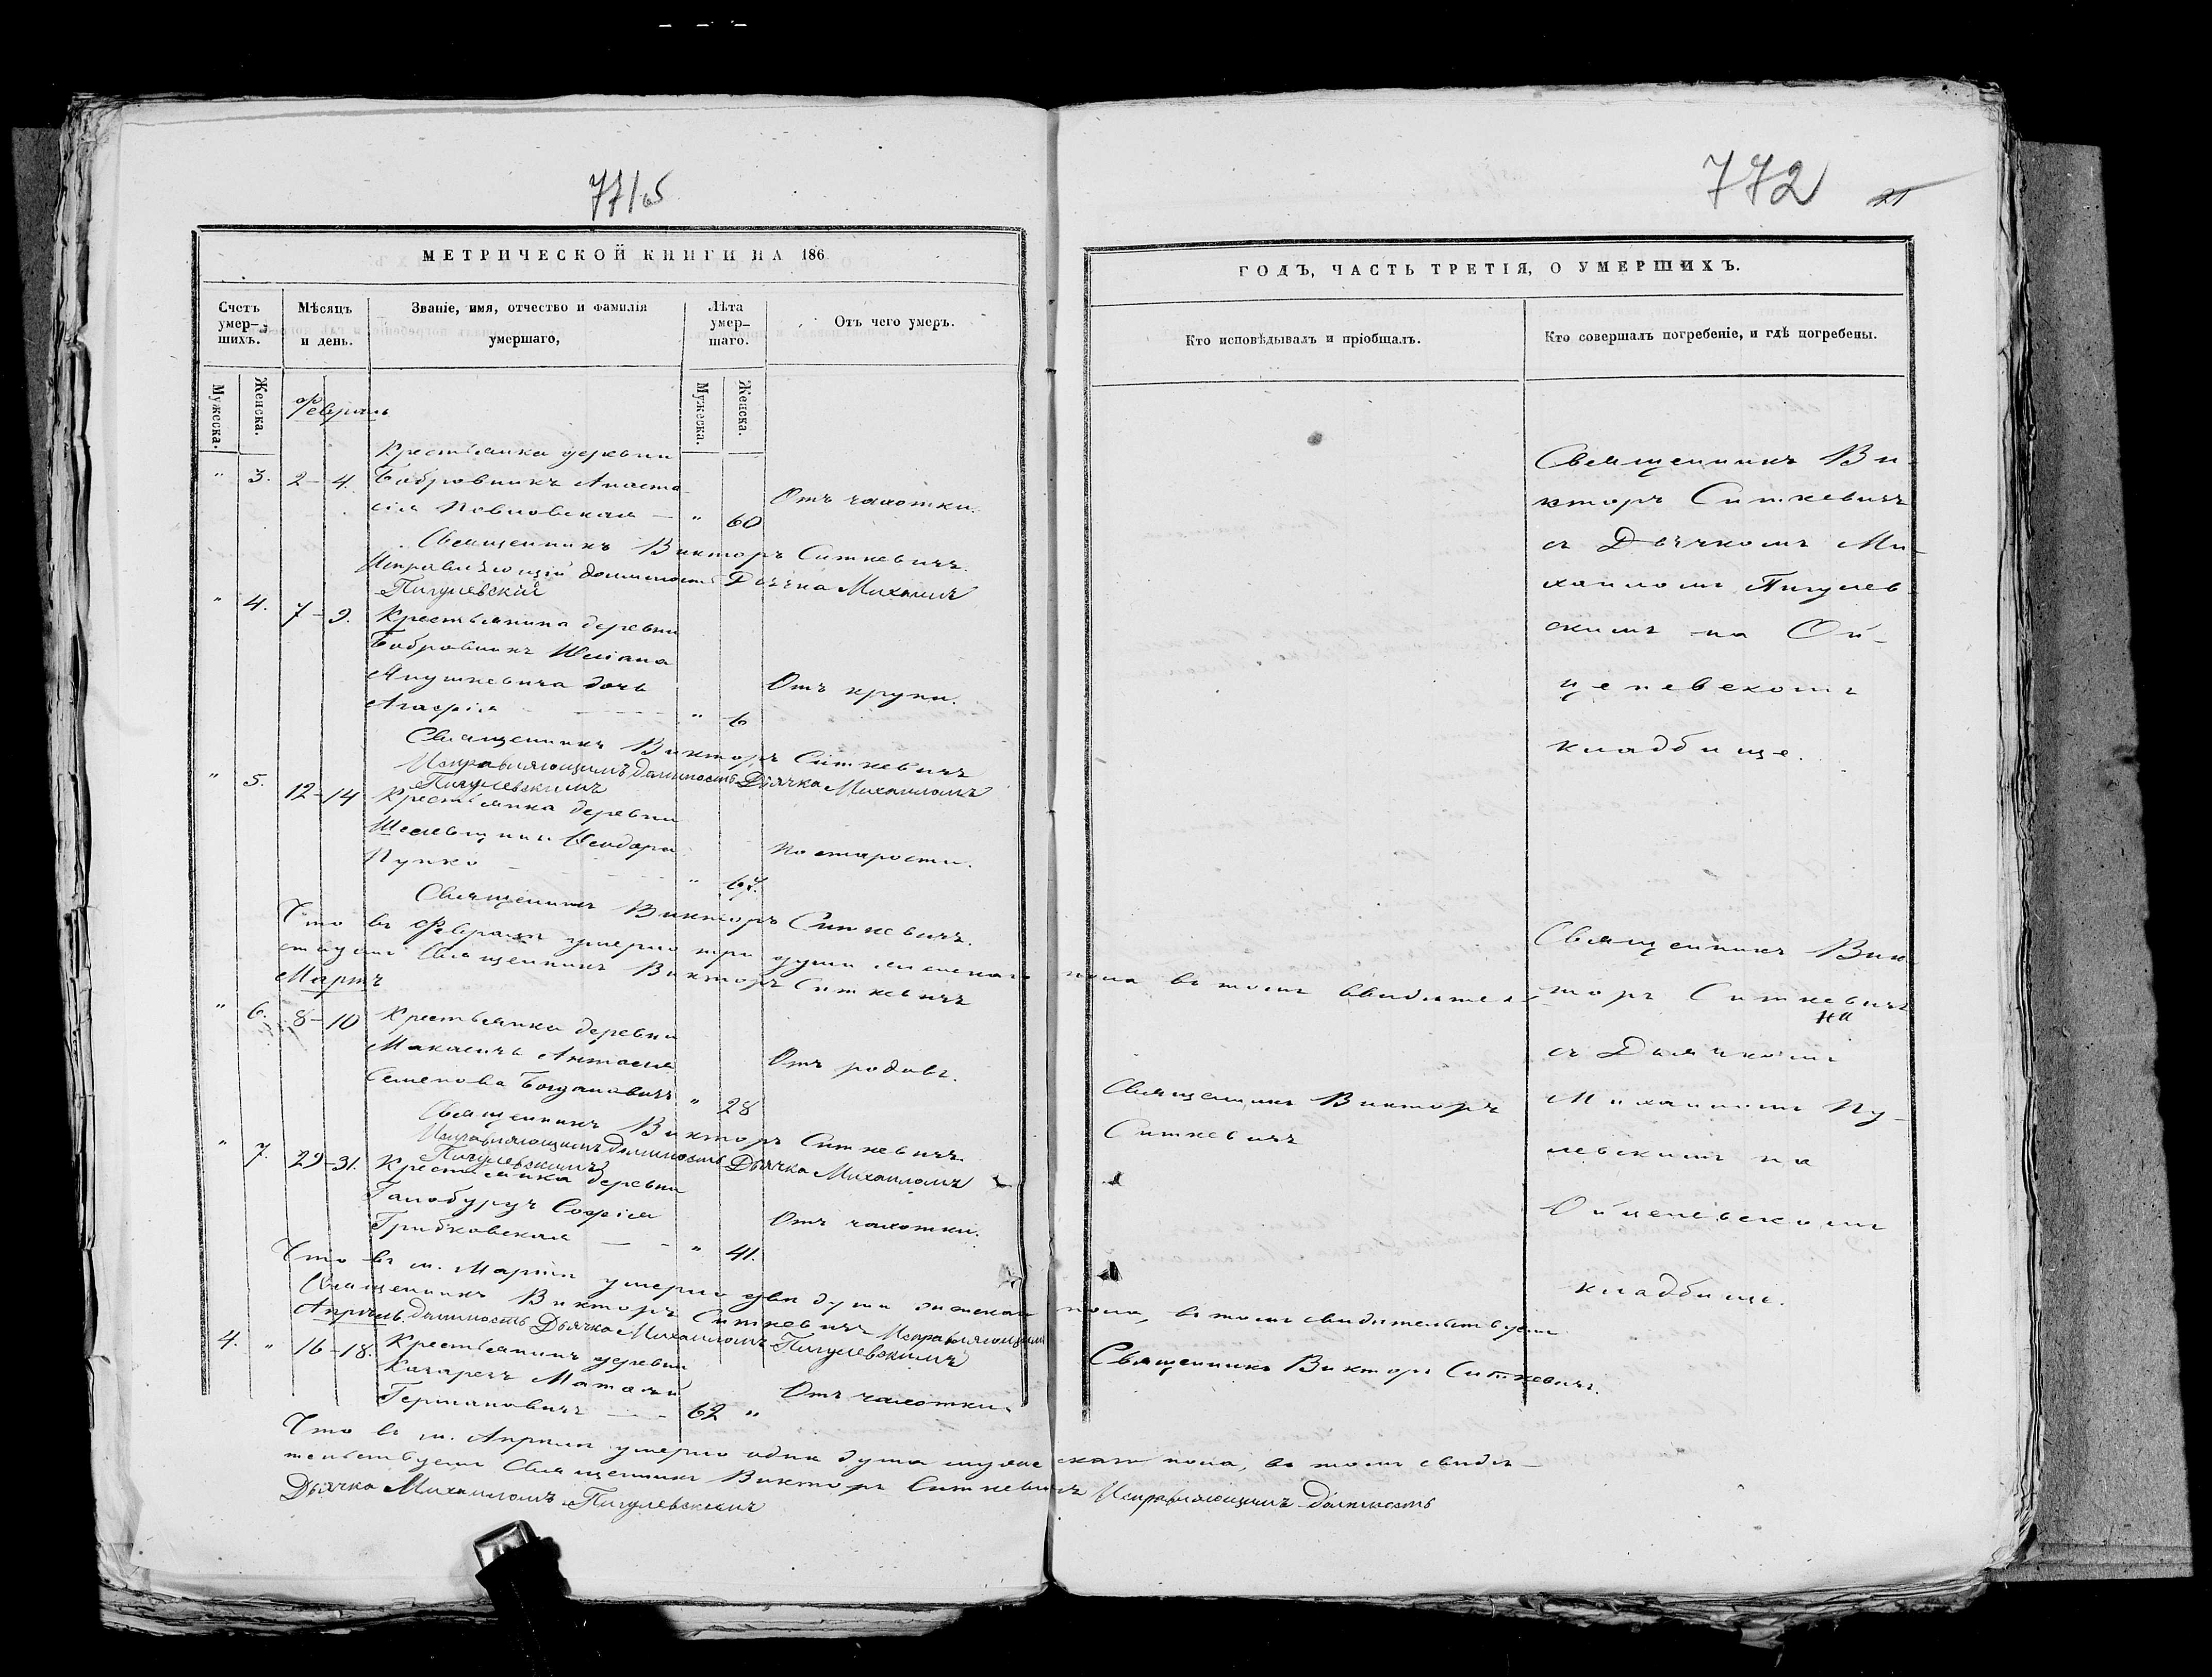 771об
МЕТРИЧЕСКОЙ КНИГИ НА 186
Счетъ умер-шихъ.
Мѣсяцъ и день.
Званіе, имя, отчество и фамилія умершаго,
Лѣта умер-шаго.
Отъ чего умеръ.
Мужеска.
Женска.
Мужеска.
Женска.
Февраль
Крестьянка деревни
" 3. 2-4. Бобровникъ Анаста-
сія Повловская — " 60 Отъ чахотки.
Священникъ Викторъ Ситкевичъ.
Исправляющій должность Дьячка Михаилъ
Пигулевскій
" 4. 7-9. Крестьянина деревни
Бобровникъ
Янушкевича дочь Отъ крупи.
Агафія - - - " 6
Священникъ Викторъ Ситкевичъ
Исправляющимъ должность Дьячка Михаиломъ
Пигулевскимъ
" 5. 12-14 Крестьянка деревни
Ѳеодора По старости.
Пупко - - - " 67.
Священникъ Викторъ Ситкевичъ.
Что въ Февралѣ умерло три души женскаго пола въ томъ свидѣтель-
ствуемъ Священникъ Викторъ Ситкевичъ
Мартъ
" 6. 8-10 Крестьянка деревни
Отъ родовъ.
Семенова Богдановичъ " 28
Священникъ Викторъ Ситкевичъ.
Исправляющимъ должность Дьячка Михаиломъ
Пигулевскимъ
" 7. 29-31. Крестьянка деревни
Галобурдъ Софія Отъ чахотки.
Грибковская — - " 41.
Что въ м. Мартѣ умерли двѣ души женскаго пола, въ томъ свидѣтельствуемъ
Священникъ Викторъ Ситкевичъ Исправляющимъ
должность Дьячка Михаиломъ Пигулевскимъ
Апрѣль
4. " 16-18. Крестьянинъ деревни
Матѳей Отъ чахотки.
Германовичъ — - 62 "
Что въ м. Апрѣлѣ умерло одна душа мужескаго пола, въ томъ свидѣ-
тельствуемъ Священникъ Викторъ Ситкевичъ Исправляющимъ должность
Дьячка Михаиломъ Пигулевскимъ
772 21
ГОДЪ, ЧАСТЬ ТРЕТІЯ, О УМЕРШИХЪ.
Кто исповѣдывалъ и пріобщалъ.
Кто совершалъ погребеніе, и гдѣ погребены.
Священникъ Ви-
кторъ Ситкевичъ
съ Дьячкомъ Ми-
хаиломъ Пигулев-
скимъ на Ой-
ценевскомъ
кладбище.
Священникъ Вик-
торъ Ситкевичъ
на
съ Дьячкомъ
Михаиломъ Пу-
левскимъ на
Ойценевскомъ
кладбище.
Священникъ Викторъ
Ситкевичъ
Священникъ Викторъ Ситкевичъ.